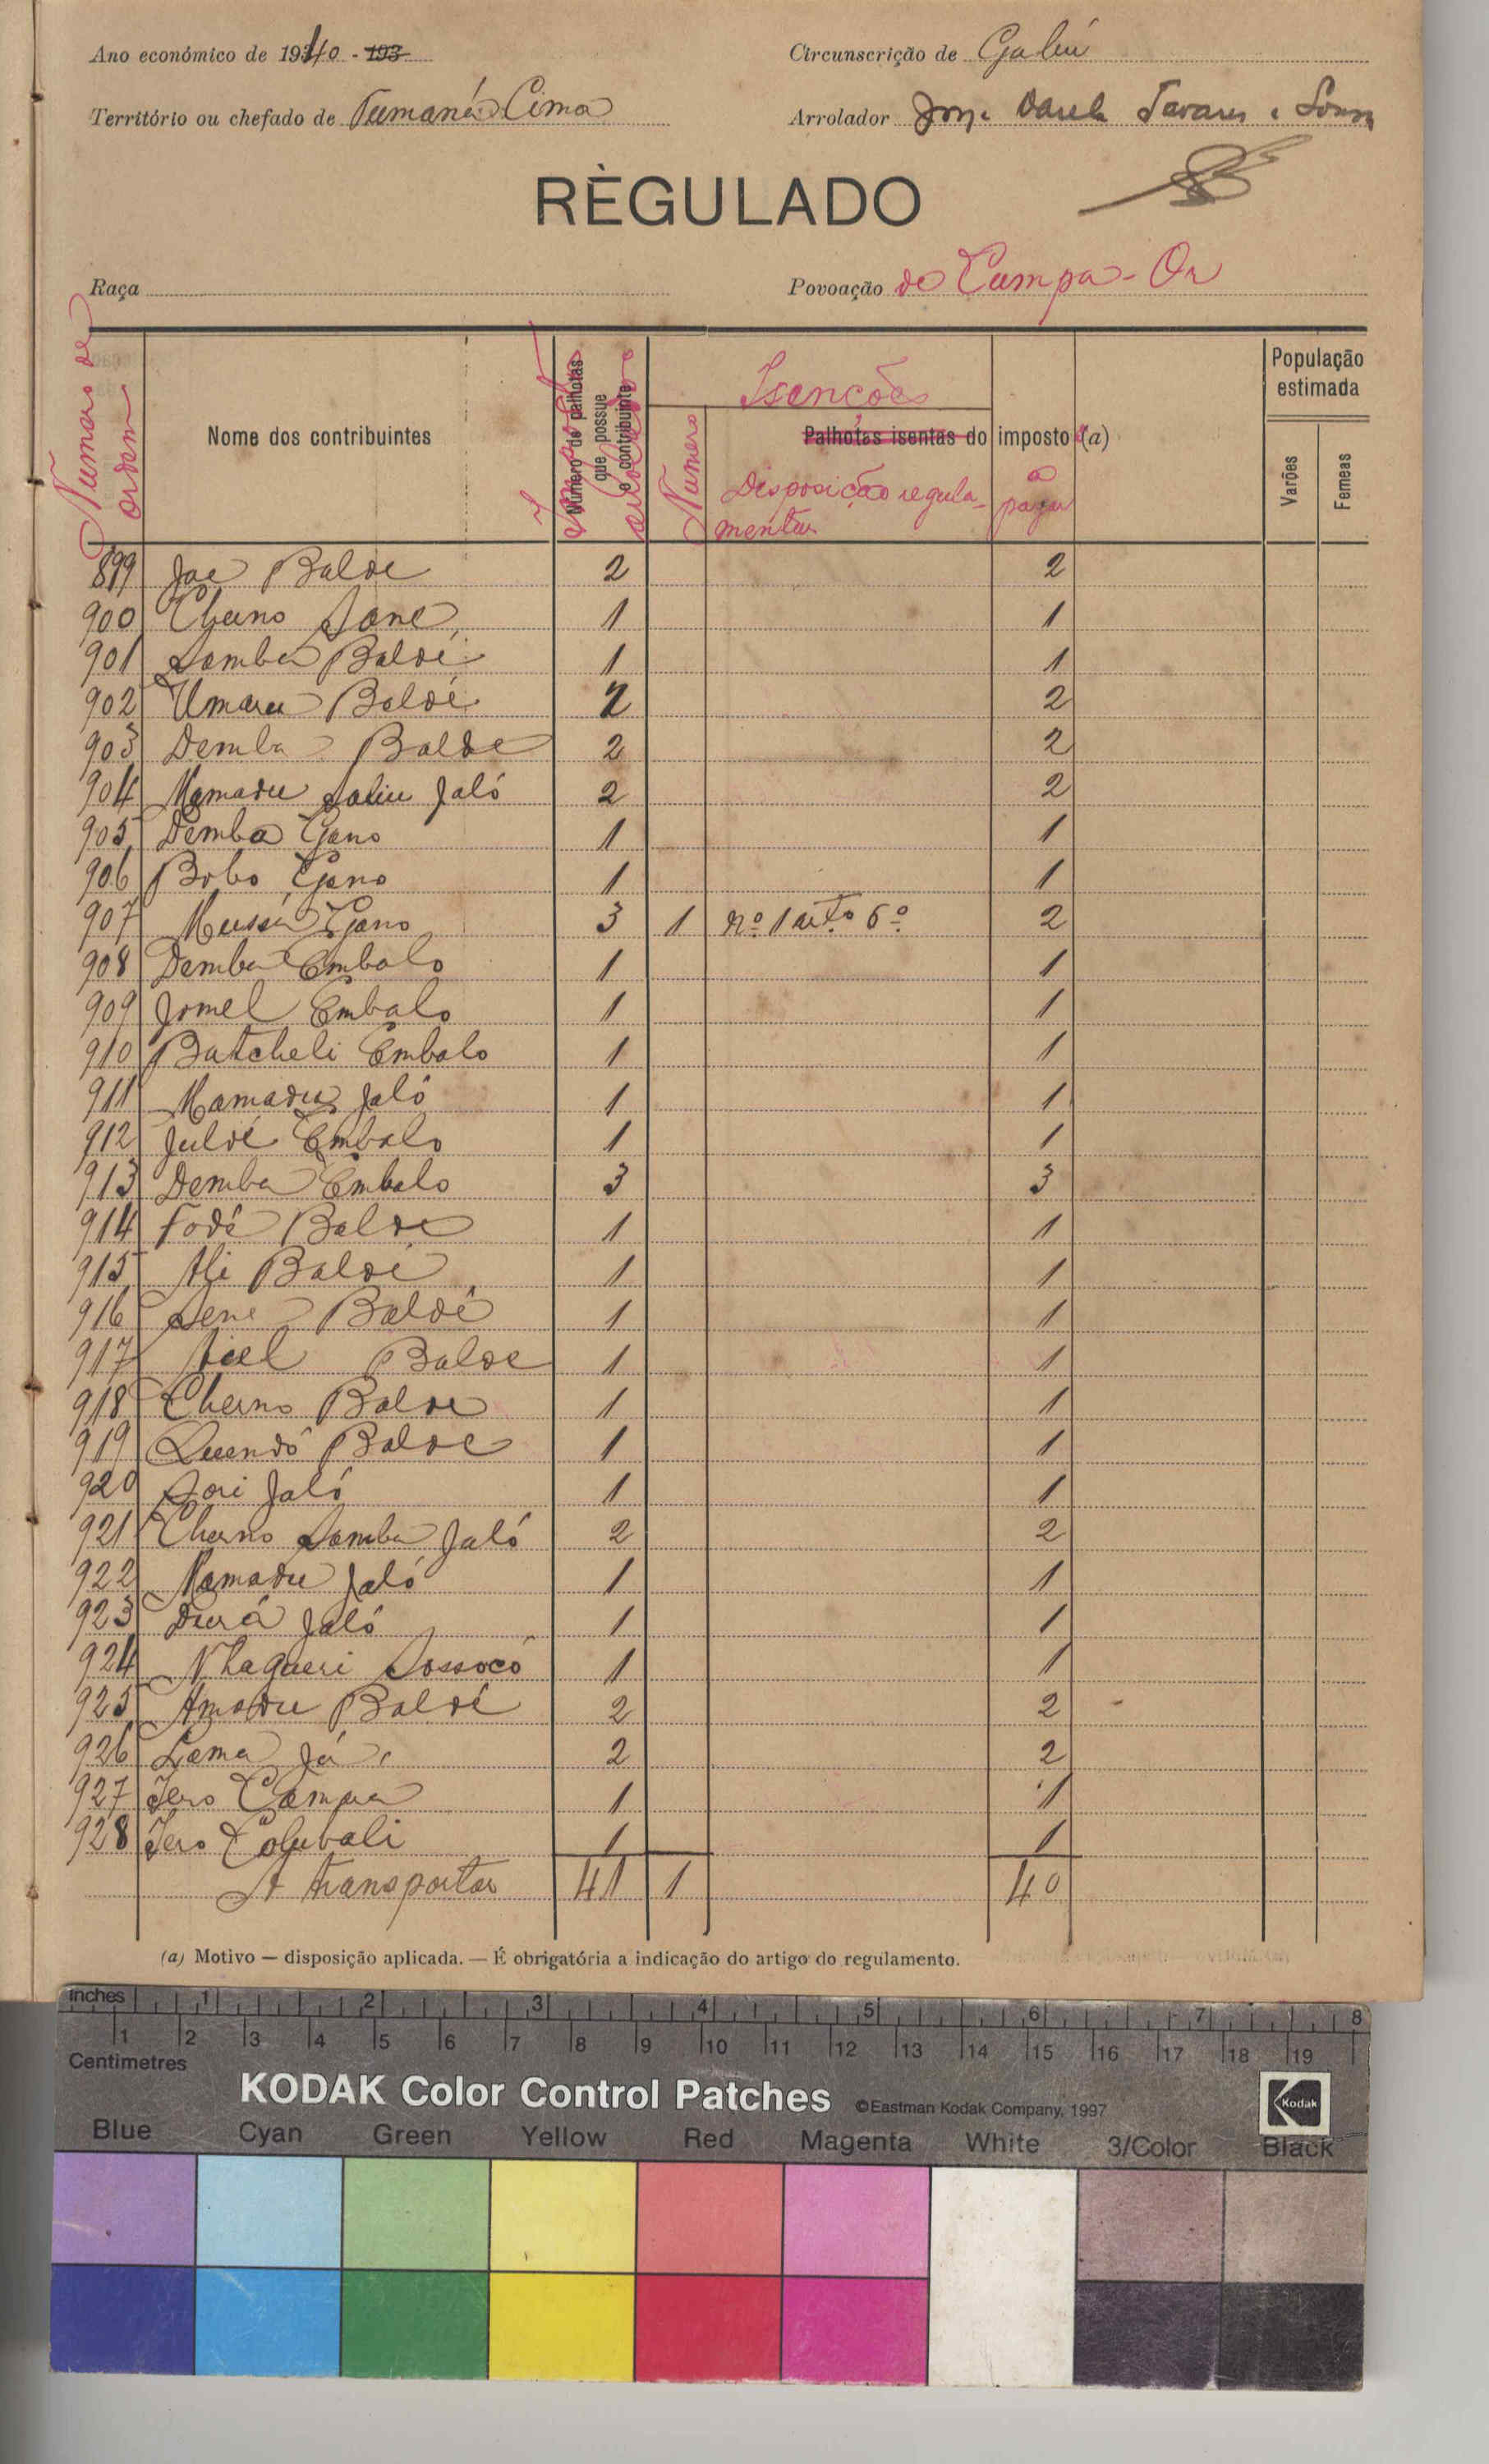 Ano económico de 1940 - 193
Circunscrição de Gabú
Território ou chefado de Tumaná Cima
Arrolador Jorge Varela Tavares e Sousa
RÈGULADO
Raça
Povoação de Cumpa-On
Numero de ordem
Nome dos contribuintes
Número de palhotas que possue o contribuinte
Isenções
Palhotas isentas do imposto (a)
Numero
Disposição regulamentar
a pagar
População estimada
Varões
Femeas
899 Jae Balde 2 2
900 Cherno Sane 1 1
901 Samba Baldé 1 1
902 Umaru Baldé 2 2
903 Demba Balde 2 2
904 Mamadu Saliu Jaló 2 2
905 Demba Gano 1 1
906 Bobo Gano 1 1
907 Mussá Gano 3 1 nº 1 artº 6º 2
908 Demba Embalo 1 1
909 Jomel Embalo 1 1
910 Butcheli Embalo 1 1
911 Mamadu Jaló 1 1
912 Juldé Embalo 1 1
913 Demba Embalo 3 3
914 Fodé Balde 1 1
915 Ali Baldé 1 1
916 Sene Baldé 1 1
917 Balde 1 1
918 Cherno Balde 1 1
919 Quendó Balde 1 1
920 Sori Jaló 1 1
921 Cherno Samba Jaló 2 2
922 Mamadu Jaló 1 1
923 Durá Jaló 1 1
924 Nhagueri Sossocó 1 1
925 Amadu Baldé 2 2
926 Lama Já 2 2
927 Jero Campa 1 1
928 Jero Colubali 1 1
A transportar 41 1 40
(a) Motivo — disposição aplicada. — É obrigatória a indicação do artigo do regulamento.
inches 1 2 3 4 5 6 7 8
1 2 3 4 5 6 7 8 9 10 11 12 13 14 15 16 17 18 19
Centimetres
KODAK Color Control Patches ©Eastman Kodak Company, 1997
Kodak
Blue Cyan Green Yellow Red Magenta White 3/Color Black